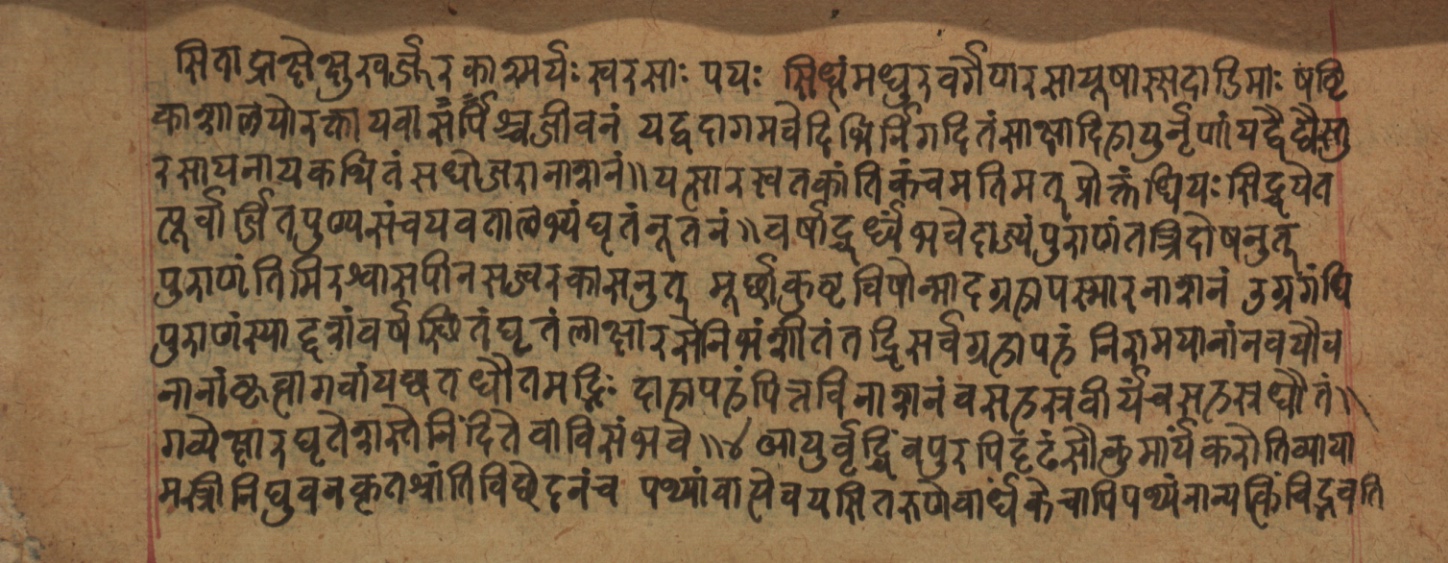 सिताद्राक्षेक्षुखर्ज्जूरकाश्मर्यः स्वरसाः पयः स्निग्धंमधुरवर्गैपारसायूषास्सदाडिमाः षष्टि
काशालयोरक्तायवासर्पिश्चजीवनं यद्वदागमवेदिभिर्निगदितंसाक्षादिहायुर्नृणांयद्वैद्यैस्तु
रसायनायकथितंसधोजरानाशनं॥ यत्सारस्वतकांतिकंचमतिमत् प्रोक्तंधियः सिद्धयेत
त्पूर्वार्ज्जितपुण्यसंचयवतालभ्यंघृतंनूतनं॥ वर्षादूर्ध्वंभवेदाज्यंपुराणंतत्रिदोषनुत्
पुराणंतिमिरश्वासपीनसज्वरकासनुत् मूर्छाकुष्टविषोन्मादग्रहापस्मारनाशनं उग्रगंधि
पुराणंस्याद्दशवर्षस्थितंघृतंलाक्षारसनिभंशीतंतद्धिसर्वग्रहापहं निरामयानांनवयौव
नानां गवांयछतधौतमद्भिः दाहापहंपित्तविनाशनंचसहस्रवीर्यंचसहस्रधौतं॥
गव्येक्षारघृतेशस्तेनिंदितेवाविसंभवे॥४ आयुर्वृद्धिंवपुरपिदृढंसौकुमार्यंकरोतिव्याया
मस्त्रीनिधुवनकृतश्रांतिविछेदनंच पथ्यंवाल्येवयसितरुणेवार्धकेचापिपथ्यंनान्यत्किंचिद्भवति